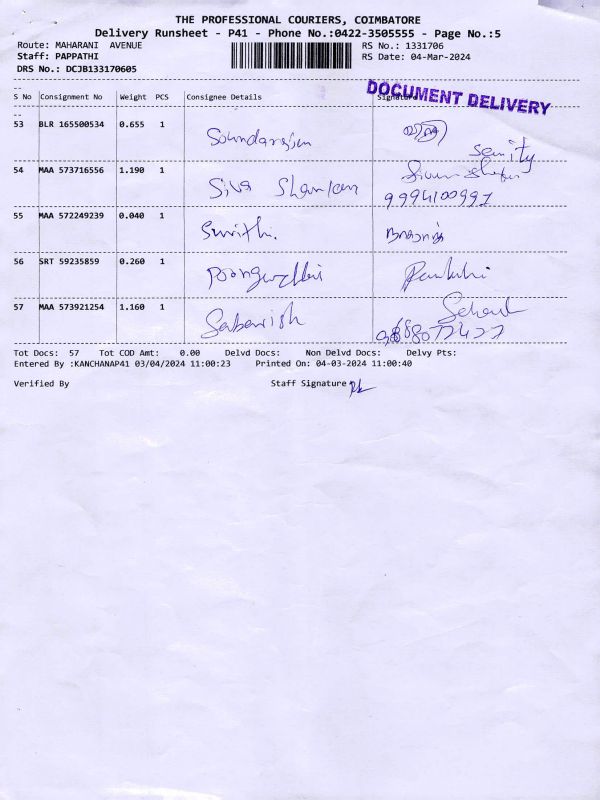 THE PROFESSIONAL COURIERS, COIMBATORE
Delivery Runsheet - P41 - Phone No.:0422-3505555 - Page No.:5
Route: MAHARANI AVENUE RS No.: 1331706
Staff: PAPPATHI RS Date: 04-Mar-2024
DRS No.: DCJB133170605
DOCUMENT DELIVERY
S No Consignment No Weight PCS Consignee Details Signature
53 BLR 165500534 0.655 1 Soundarajan
54 MAA 573716556 1.190 1 Siva Shankar
9994100991
55 MAA 572249239 0.040 1
56 SRT 59235859 0.260 1
57 MAA 573921254 1.160 1 Sabarish
Tot Docs: 57 Tot COD Amt: 0.00 Delvd Docs: Non Delvd Docs: Delvy Pts:
Entered By :KANCHANAP41 03/04/2024 11:00:23 Printed On: 04-03-2024 11:00:40
Verified By Staff Signature